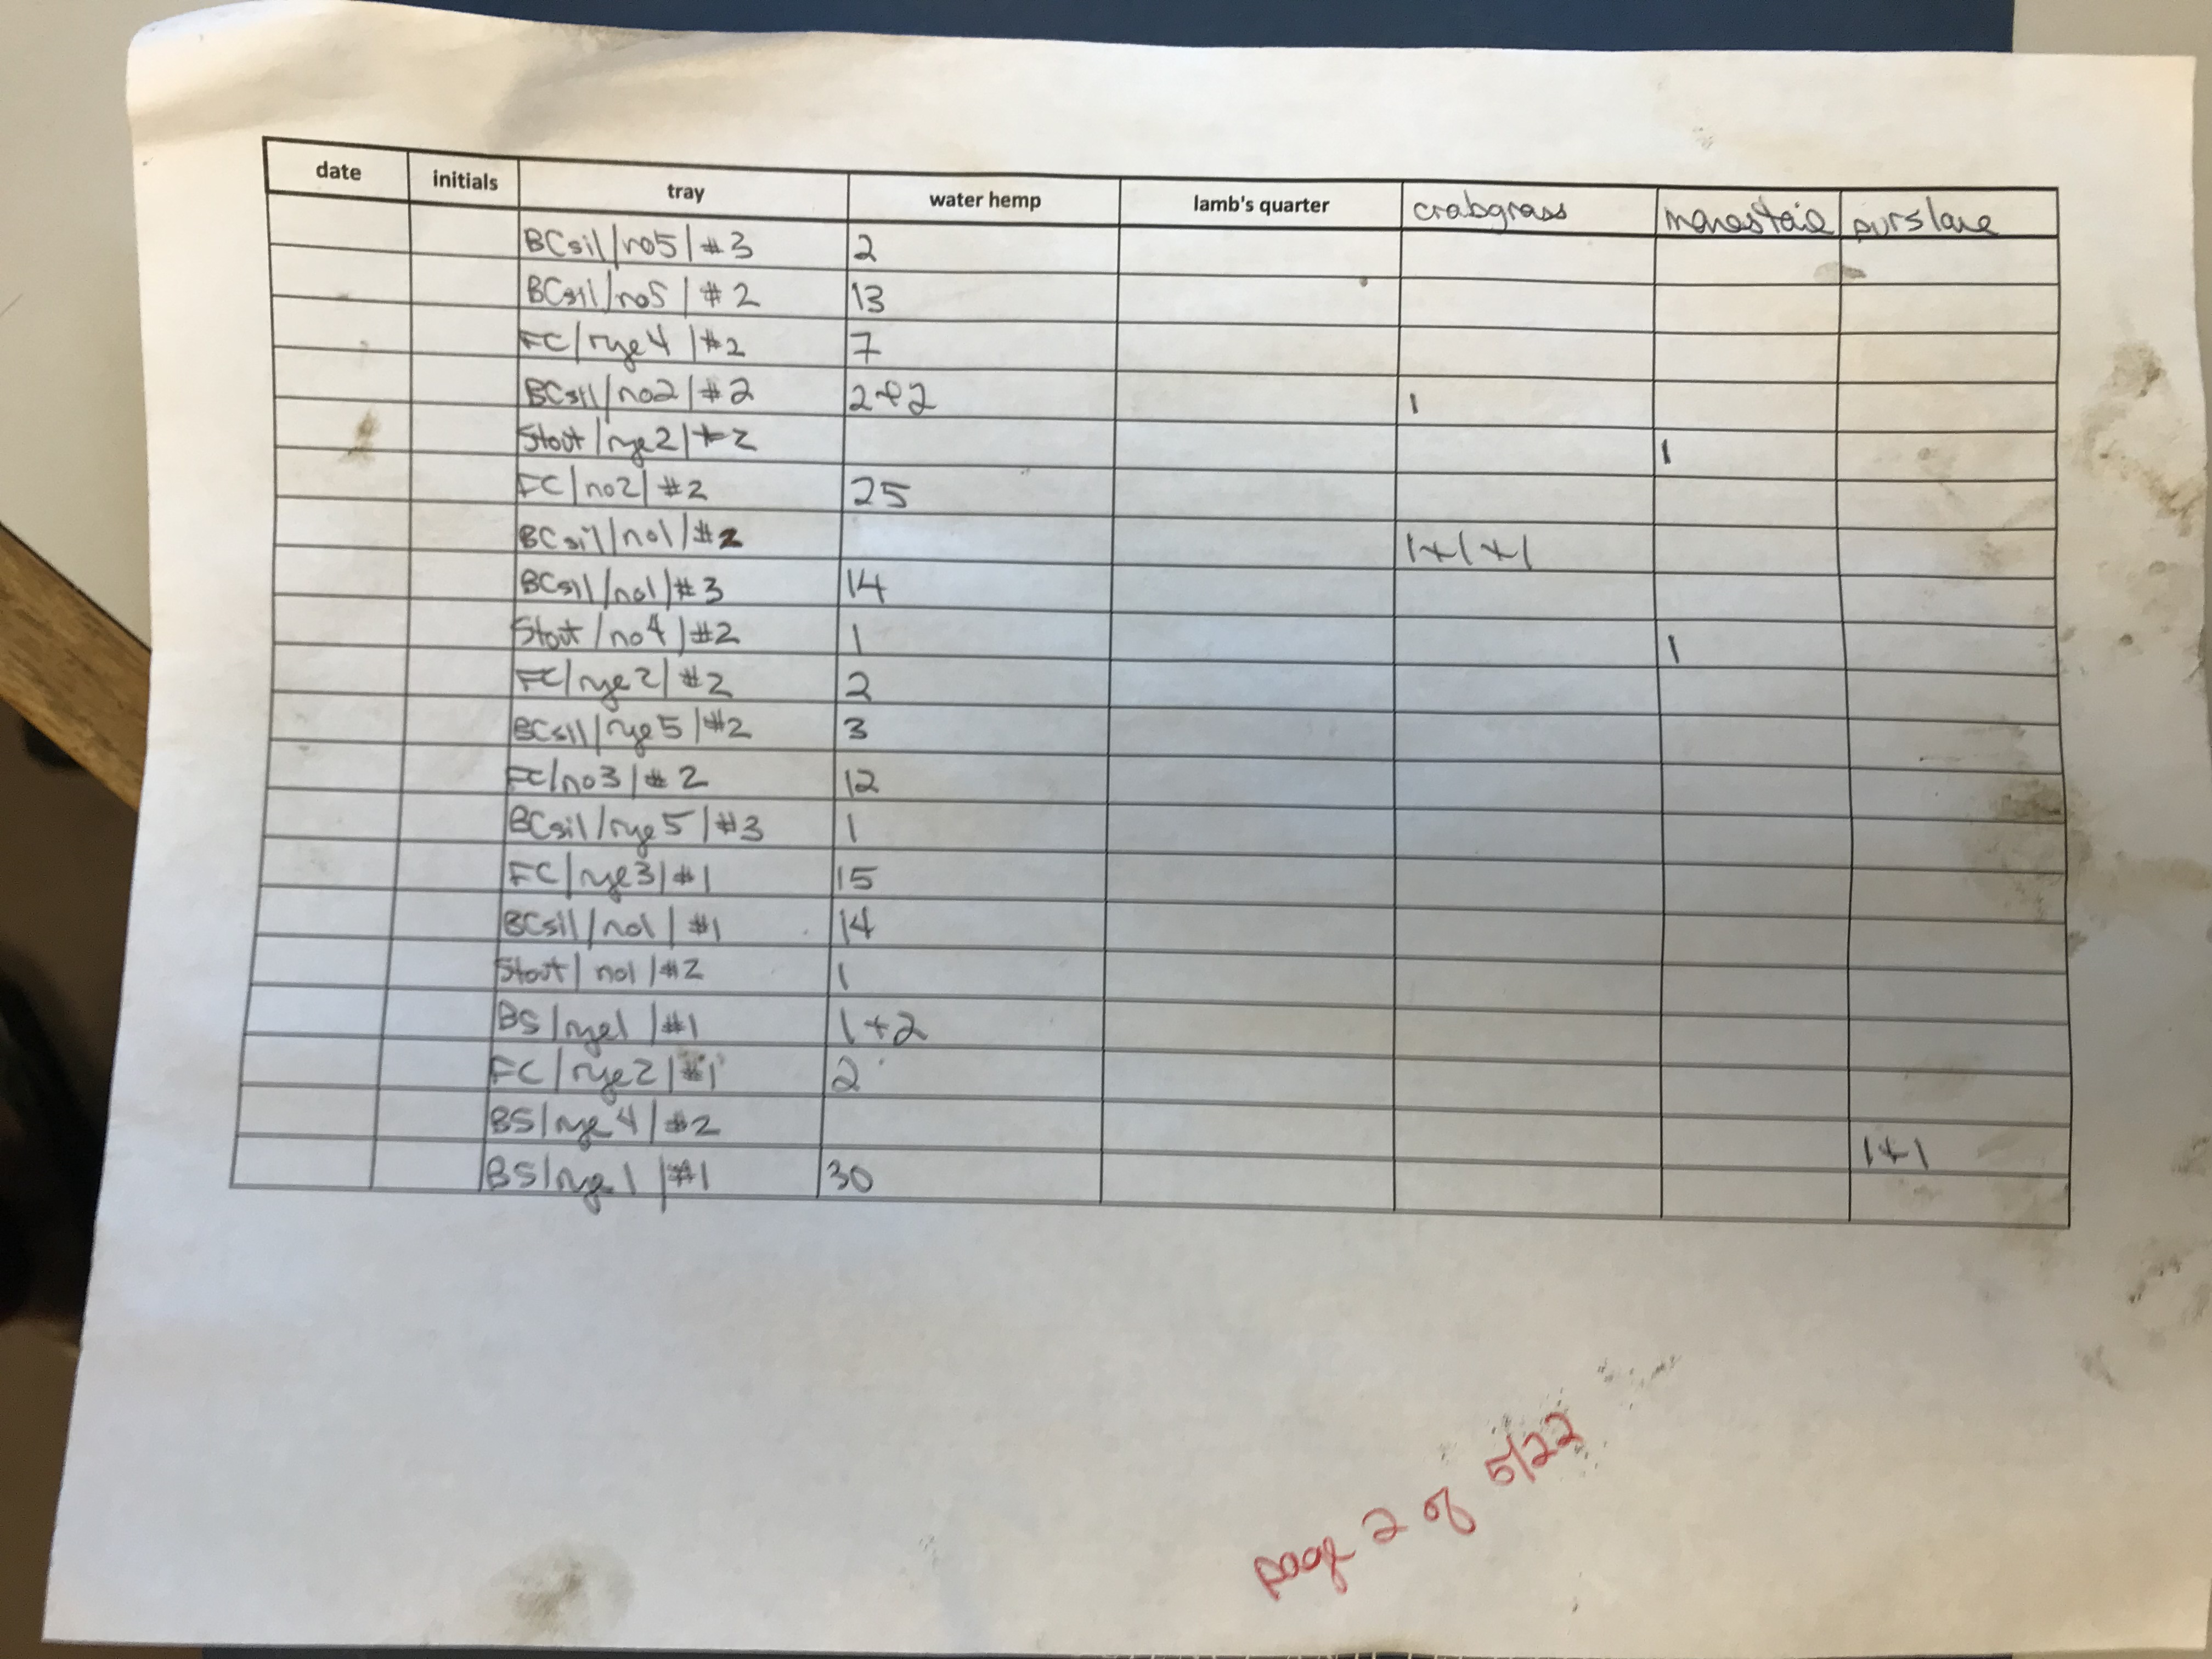 date initials tray water hemp lamb's quarter crabgrass marestail purslane
BCsil/no5/#3 2
BCsil/no5/#2 13
FC/rye4/#2 7
BCsil/no2/#2 2+2 1
Stout/rye2/#2 1
FC/no2/#2 25
BCsil/no1/#2 1+1+1
BCsil/no1/#3 14
Stout/no4/#2 1 1
FC/rye2/#2 2
BCsil/rye5/#2 3
FC/no3/#2 12
BCsil/rye5/#3 1
FC/rye3/#1 15
BCsil/no1/#1 14
Stout/no1/#2 1
BS/rye1/#1 1+2
FC/rye2/#1 2
BS/rye4/#2 1+1
BS/rye1/#1 30
page 2 of 5/22